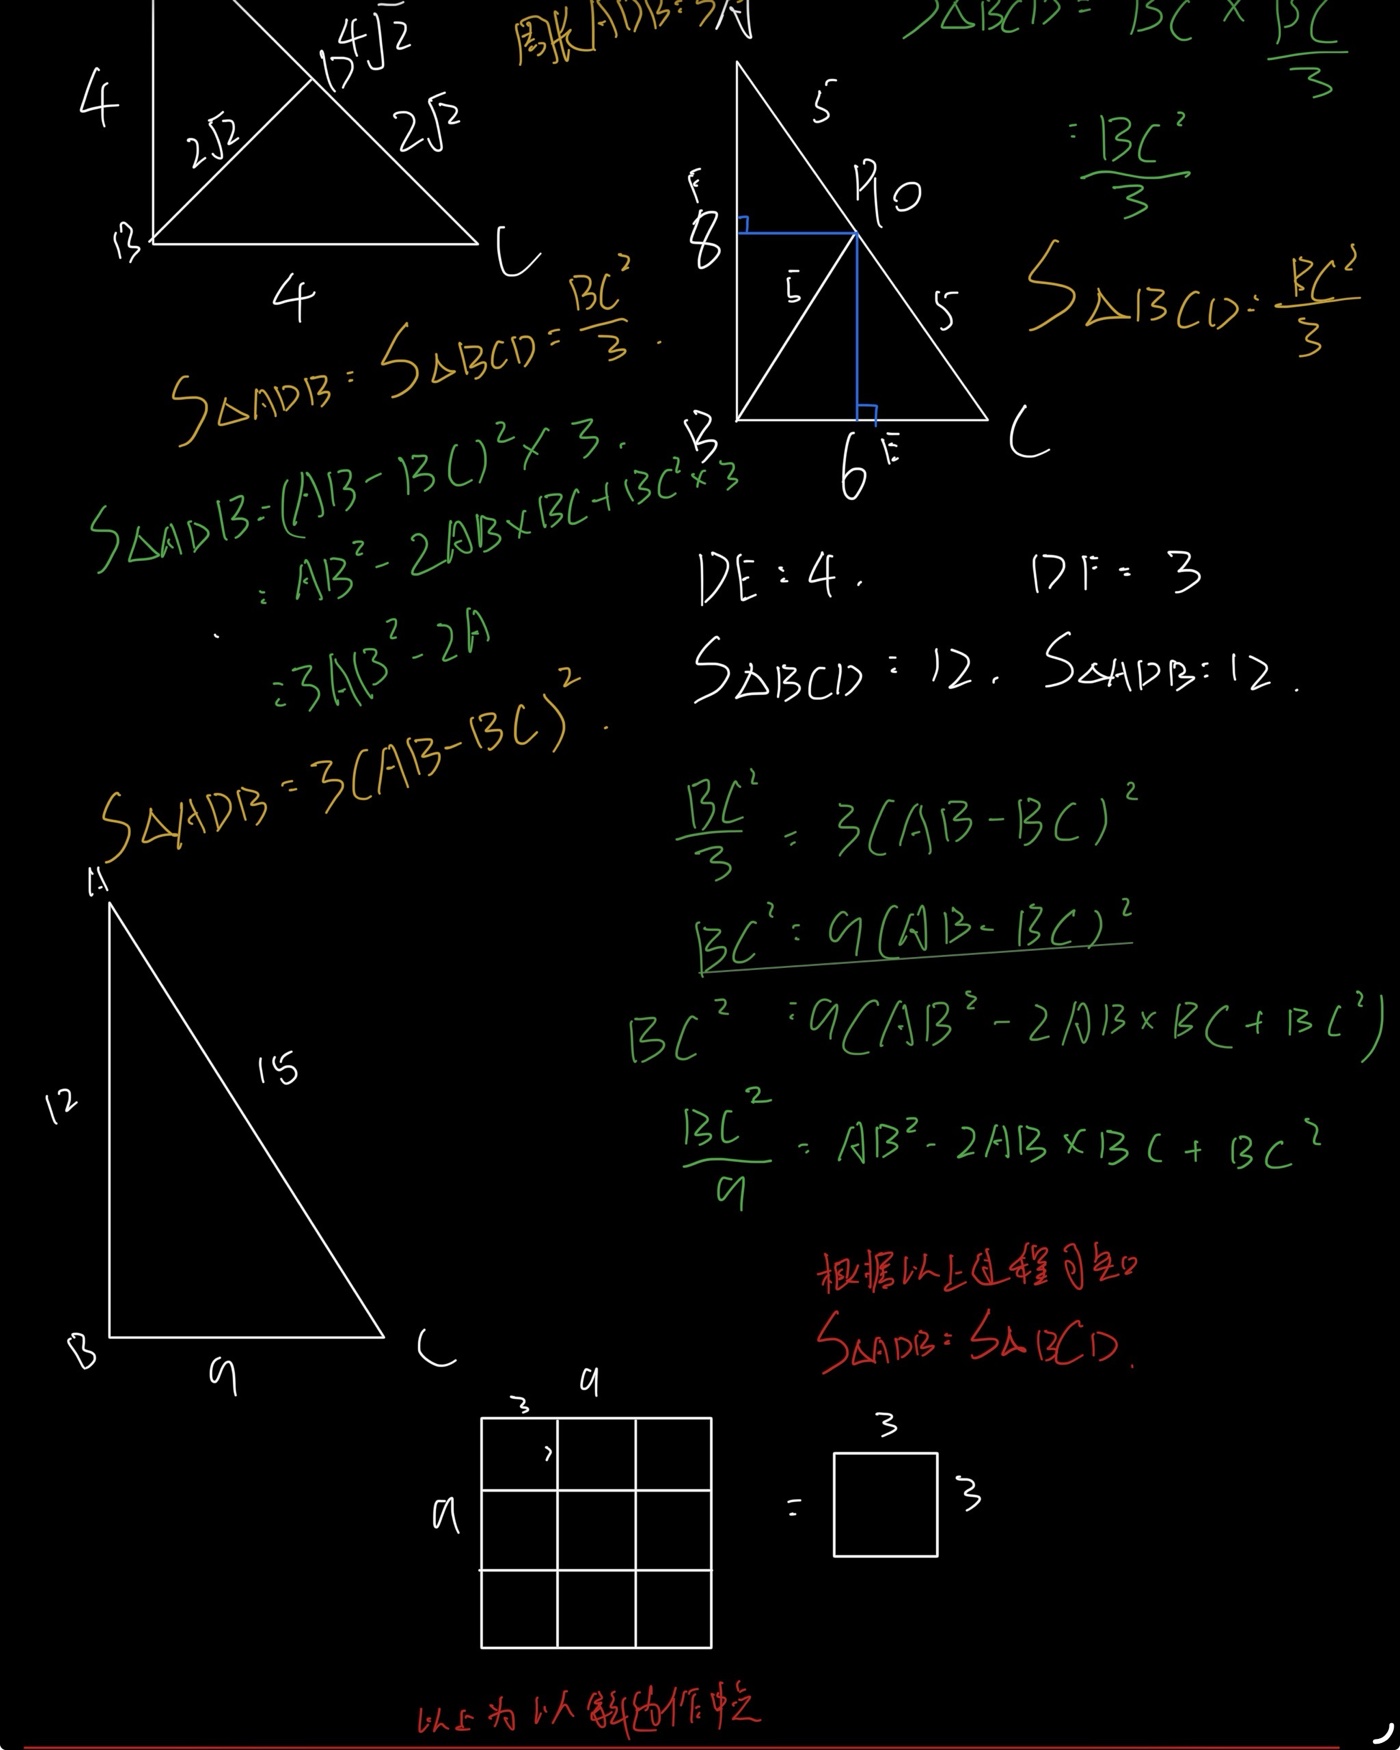 4
4√2
D
2√2
2√2
B
C
4
周长ADB=3A
S△BCD = BC × BC/3
= BC²/3
S△BCD = BC²/3
5
F
8
D
10
5
5
B
6
E
C
S△ADB = S△BCD = BC²/3.
S△ADB = (AB-BC)² × 3.
= AB² - 2AB×BC+BC²×3
= 3AB² - 2A
S△ADB = 3(AB-BC)².
DE=4. DF=3
S△BCD=12. S△ADB=12.
BC²/3 = 3(AB-BC)²
BC² = 9(AB-BC)²
BC² = 9(AB²-2AB×BC+BC²)
BC²/9 = AB²-2AB×BC+BC²
根据以上过程可知
S△ADB=S△BCD.
A
12
15
B
9
C
3
9
9
=
3
3
以上为以斜边作中线